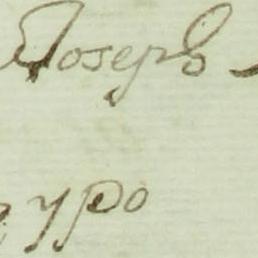 Joseph
y po